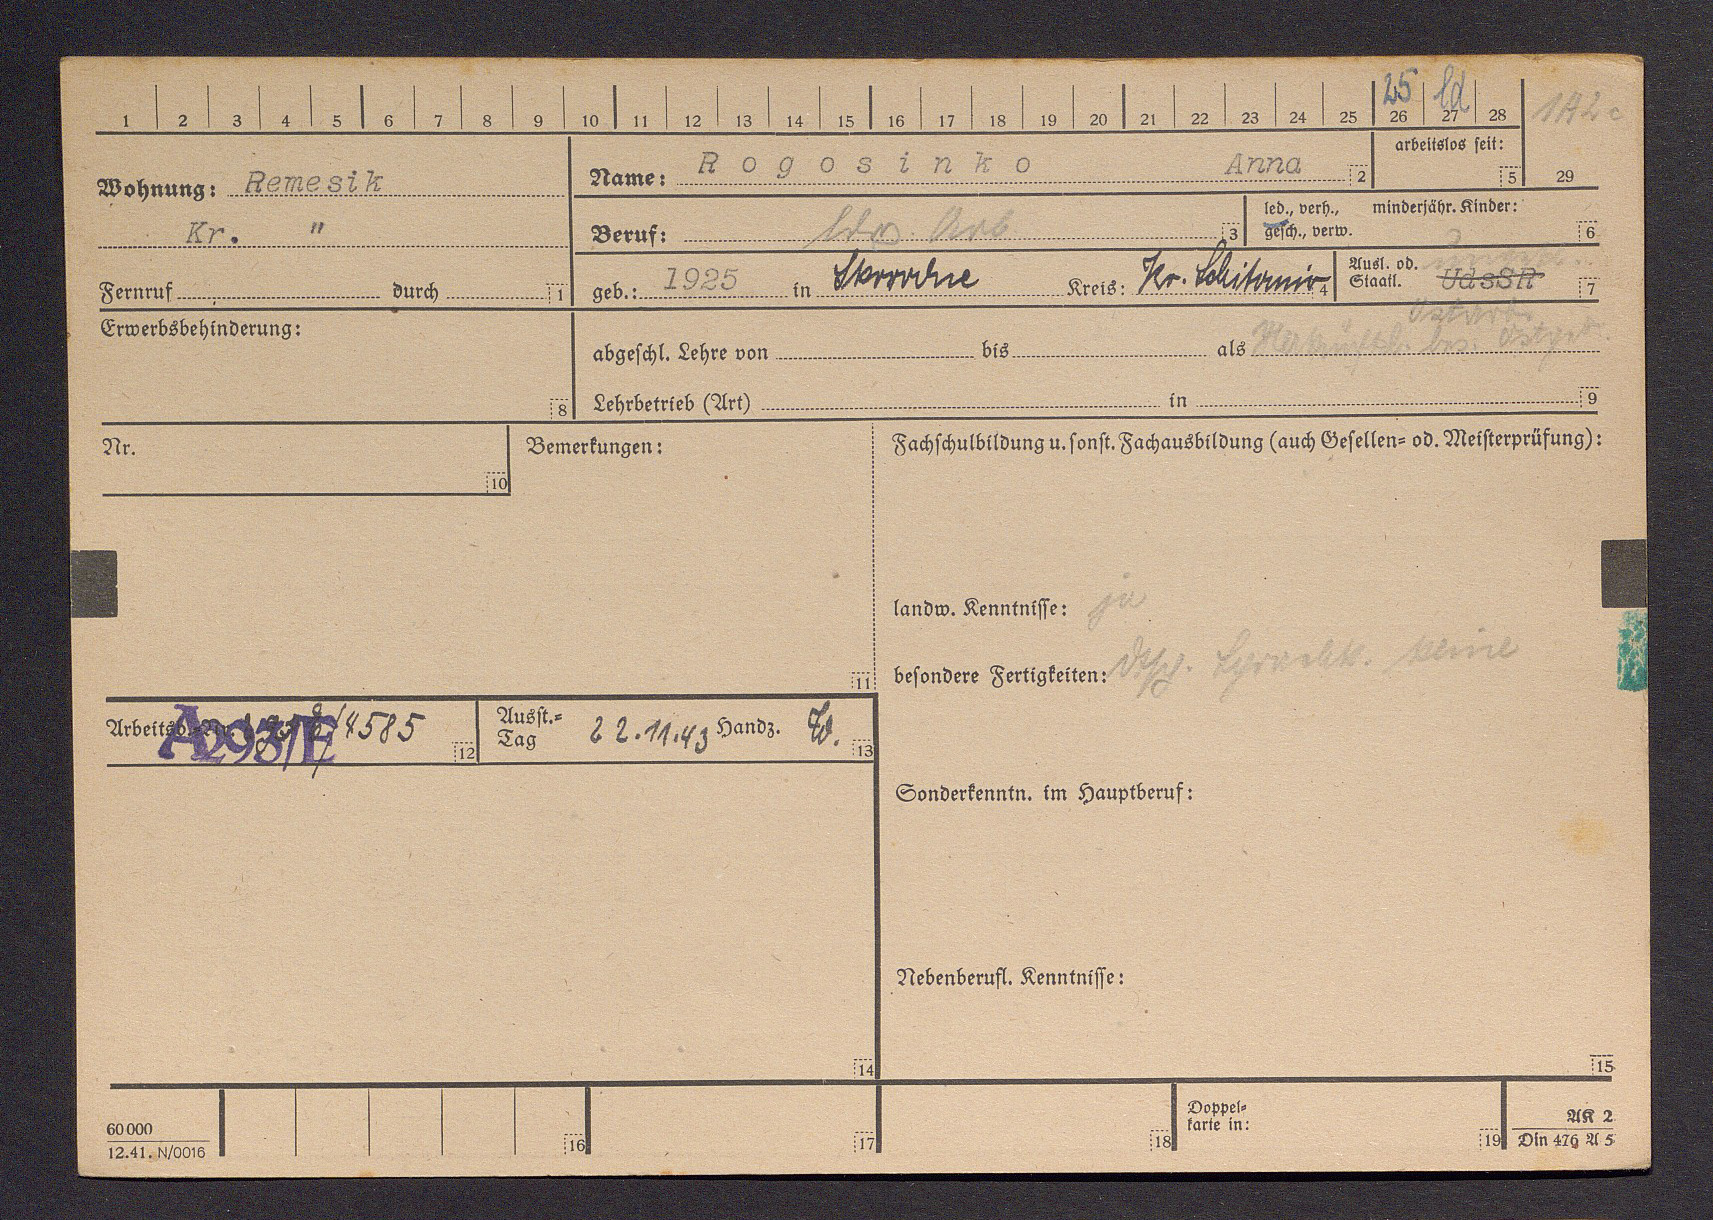 25 ld
1 2 3 4 5 6 7 8 9 10 11 12 13 14 15 16 17 18 19 20 21 22 23 24 25 26 27 28
arbeitslos seit:
5 29
Wohnung: Remesik
Kr. "
Fernruf durch 1
Name: Rogosinko Anna 2
Beruf: ldw. Arb 3
led., verh., minderjähr. Kinder:
gesch., verw. 6
geb.: 1925 in Kreis: Kr. 4
Ausl. od.
Staatl. UdSSR 7
Ostarb.
Erwerbsbehinderung:
8
abgeschl. Lehre von bis als
Lehrbetrieb (Art) in 9
Nr.
10
Bemerkungen:
11
Fachschulbildung u. sonst. Fachausbildung (auch Gesellen- od. Meisterprüfung):
landw. Kenntnisse: ja
besondere Fertigkeiten: keine
Arbeitsb.-Nr. 4585 12
A293/E
Ausst.-
Tag 22.11.43 Handz. 13
Sonderkenntn. im Hauptberuf:
Nebenberufl. Kenntnisse:
14
15
60000
12.41. N/0016
16 17 18
Doppel-
karte in: 19
AK 2
Din 476 A 5